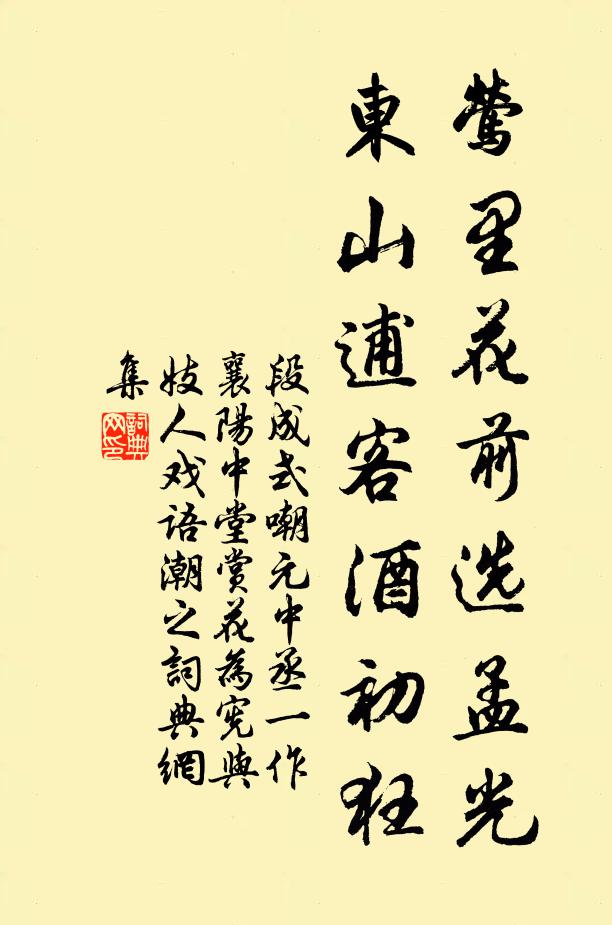 莺里花前选孟光
東山逋客酒初狂
段成式嘲元中丞一作
襄陽中堂賞花為宪與
妓人戏语潮之詞典網
集
詞典网印